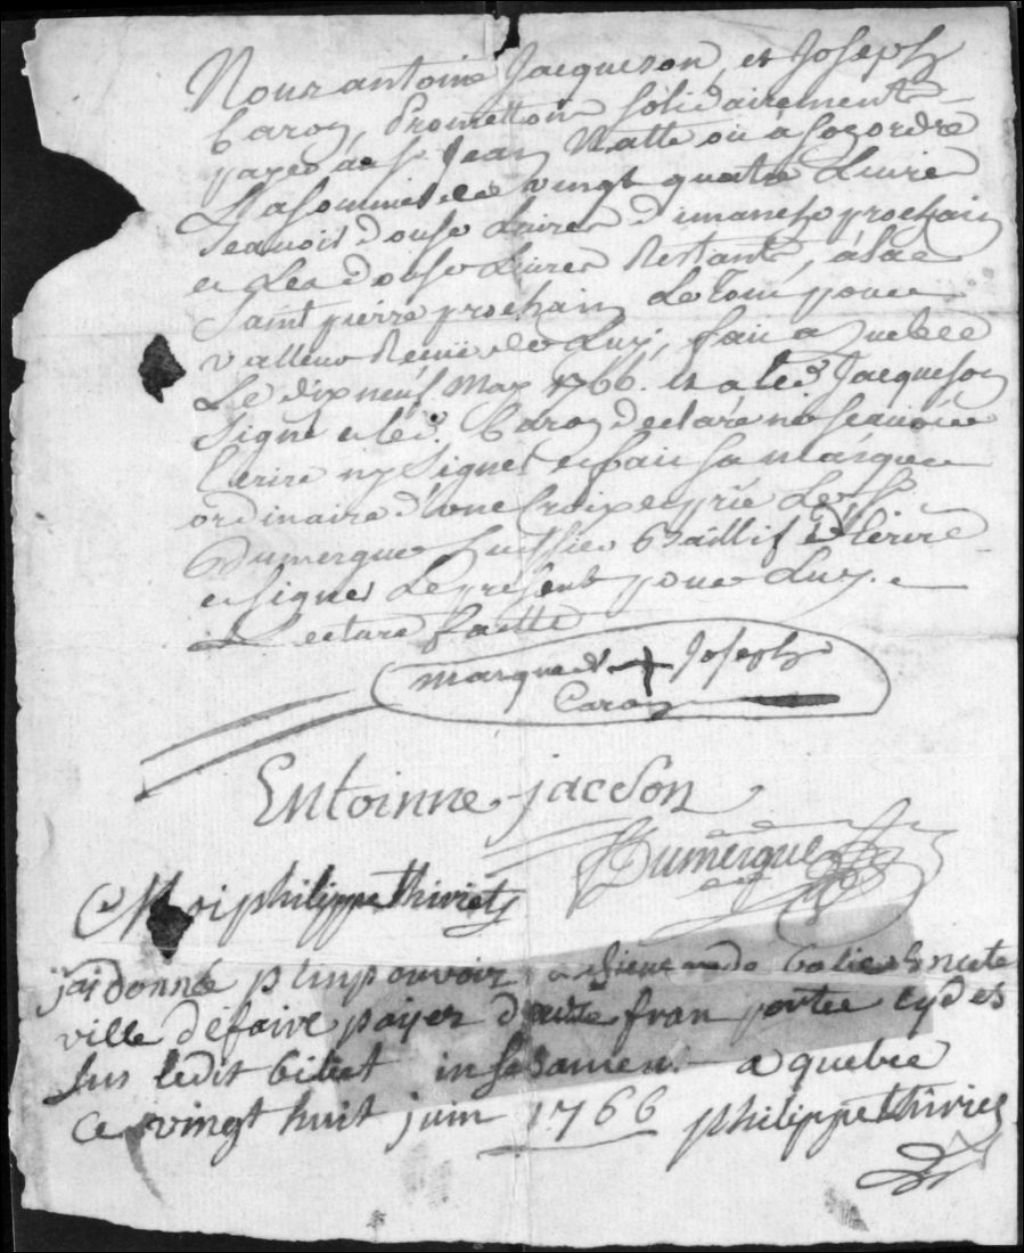 Nous antoine Jacqueson, et Joseph
Caron, Promettons solidairement
payer au Sr Jean Natte ou à son ordre
La somme de vingt quatre Livre
Scavoir douse Livres dimanche prochain
et Les douse Livres Restant, à la
Saint pierre prochain Le tout pour
valleur Recüe de Luy, fait a Quebec
Le dix neuf May 1766. et a led. Jacqueson
Signé et led. Caron declaré ne scavoir
Ecrire ny Signer et fait sa marque
ordinaire d'une Croix et prié Le Sr
Dumergue huissier Baillif d'Ecrire
et signer Le present pour Luy. .
Lecture faitte
marque de + Joseph
Caron
Entoinne jacson
Dumergue
Moi philippe thiviet
jai donné plin pouvoir a
ville de faire payer fran portee cy des
sus ledit biliet a quebec
ce vingt huit juin 1766 philippe thivier